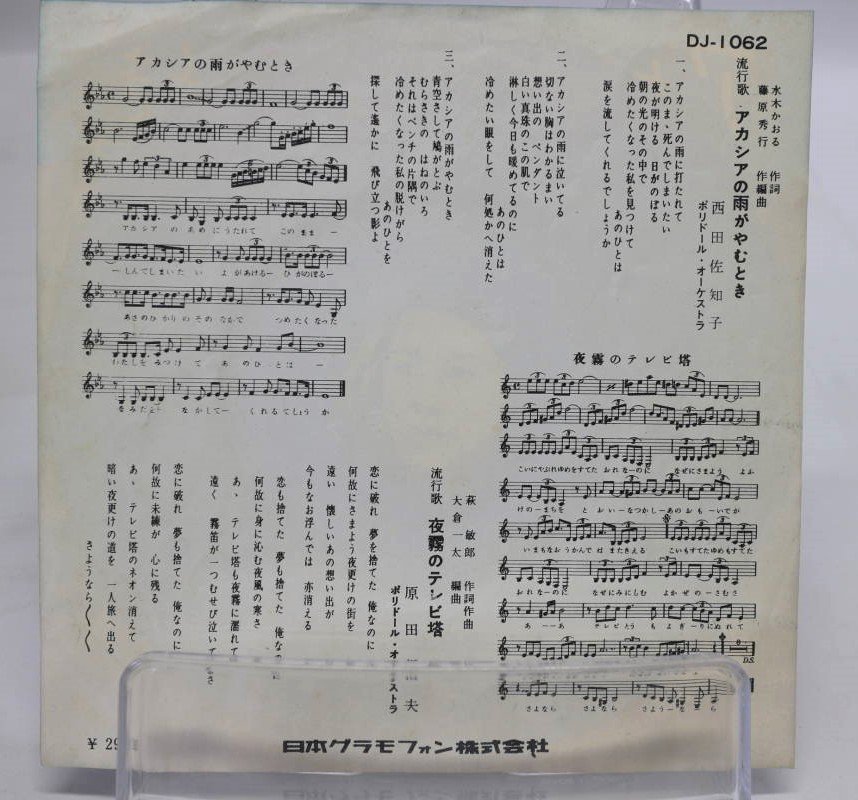 DJ-1062
水木かおる 作詞
藤原秀行 作編曲
流行歌 アカシアの雨がやむとき
西田佐知子
ポリドール・オーケストラ
一、アカシアの雨に打たれて
このまま死んでしまいたい
夜が明ける 日がのぼる
朝の光のその中で
冷めたくなった私を見つけて
あのひとは
涙を流してくれるでしょうか
二、アカシアの雨に泣いてる
切ない胸はわかるまい
想い出の ペンダント
白い真珠のこの肌で
淋しく今日も暖めてるのに
あのひとは
冷めたい眼をして 何処かへ消えた
三、アカシアの雨がやむとき
青空さして鳩がとぶ
むらさきの はねのいろ
それはベンチの片隅で
冷めたくなった私の脱けがら
あのひとを
探して遥かに 飛び立つ影よ
アカシアの雨がやむとき
アカシア の あめ にうたれて このまま ー
ー しんでしまいたい よ があけるー ひ がのぼるー
あさのひ かり の その なかで つめ たく なった
わたしを みつけ て あ の ひ ー と は ー
なみだを なかしてー くれる でしょう か
夜霧のテレビ塔
こいにやぶれゆめをすてた おれ なーのに なぜにさまよう よふ
けの ー まちを と お い ー な つかし ー あの お も ー いでが
い ま もなお うかんで は またきえる こいもすてたゆめもすてた
おれ なーのに なぜにみにしむ よか ぜのーさむさ
あ ー ー あ テレビとう も よ ぎ ー りにぬれて
D.S.
さよなら さよなら さようーなら
萩 敏郎 作詞作曲
大倉一太 編曲
流行歌 夜霧のテレビ塔
恋に破れ 夢を捨てた 俺なのに
何故にさまよう夜更けの街を
遠い 懐しいあの想い出が
今もなお浮んでは 亦消える
恋も捨てた 夢も捨てた 俺なの
何故に身に沁む夜風の寒さ
あゝ テレビ塔も夜霧に濡れて
遠く 霧笛が一つむせび泣いて
恋に破れ 夢も捨てた 俺なのに
何故に未練が 心に残る
あゝ テレビ塔のネオン消えて
暗い夜更けの道を 一人旅へ出る
さようなら〱〱
¥ 29
日本グラモフォン株式会社